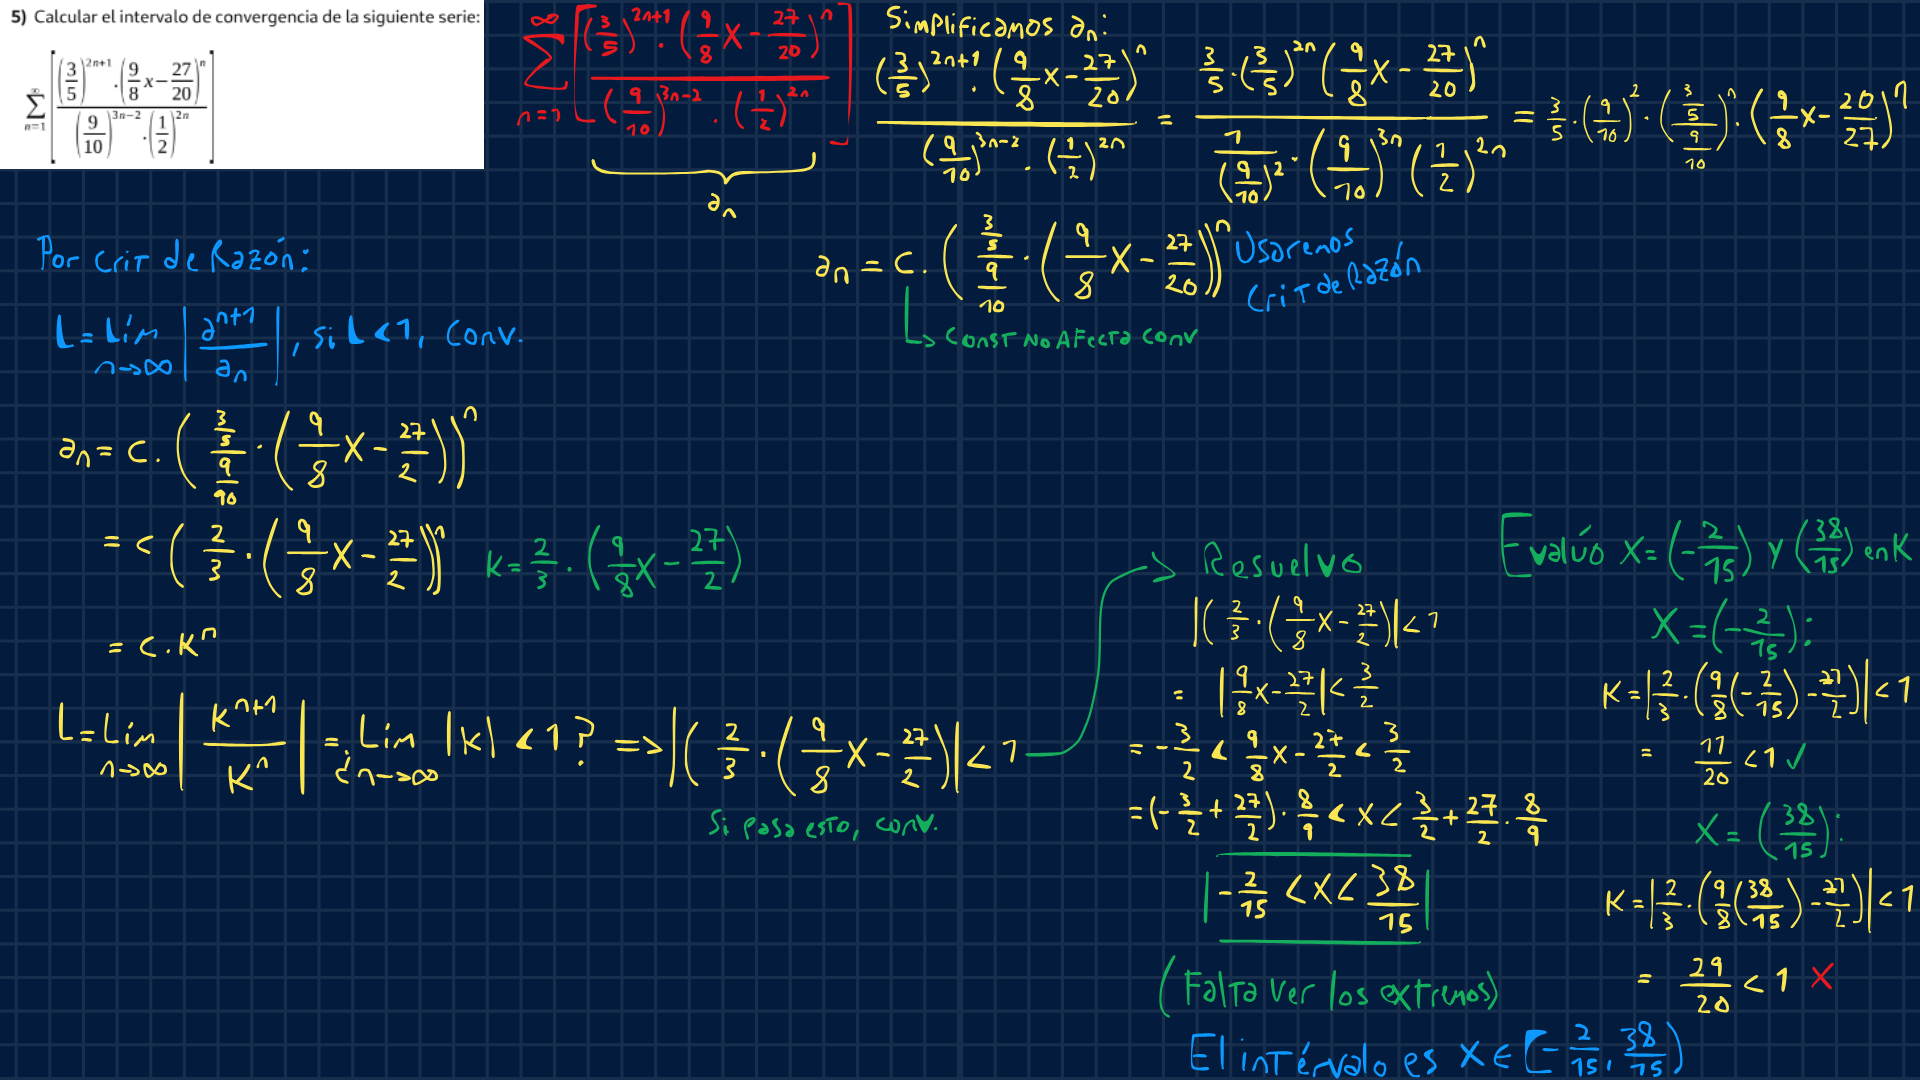 5) Calcular el intervalo de convergencia de la siguiente serie:
∑_{n=1}^{∞} [ ( (3/5)^{2n+1} . (9/8 x − 27/20)^n ) / ( (9/10)^{3n−2} . (1/2)^{2n} ) ]
∑_{n=1}^{∞} [ ( (3/5)^{2n+1} . (9/8 X − 27/20)^n ) / ( (9/10)^{3n−2} . (1/2)^{2n} ) ]
an
Simplificamos an:
( (3/5)^{2n+1} . (9/8 X − 27/20)^n ) / ( (9/10)^{3n−2} . (1/2)^{2n} ) = ( 3/5 . (3/5)^{2n} (9/8 X − 27/20)^n ) / ( 1/(9/10)^2 . (9/10)^{3n} (1/2)^{2n} ) = 3/5 . (9/10)^2 . ( (3/5)/(9/10) )^n . (9/8 X − 20/27)^n
an = C . ( (3/5)/(9/10) . (9/8 X − 27/20) )^n Usaremos Crit de Razón
↳ Const No Afecta Conv
Por Crit de Razón:
L = Lím_{n→∞} | a^{n+1} / an |, Si L < 1, Conv.
an = C . ( (3/5)/(9/10) . (9/8 X − 27/2) )^n
= C ( 2/3 . (9/8 X − 27/2) )^n K = 2/3 . (9/8 X − 27/2)
= C . K^n
L = Lím_{n→∞} | K^{n+1} / K^n | = ¿ Lím_{n→∞} |K| < 1 ? => |( 2/3 . (9/8 X − 27/2)| < 1
Si pasa esto, conv.
→ Resuelvo
|( 2/3 . (9/8 X − 27/2)| < 1
= | 9/8 X − 27/2 | < 3/2
= −3/2 < 9/8 X − 27/2 < 3/2
= (−3/2 + 27/2) . 8/9 < X < 3/2 + 27/2 . 8/9
| −2/15 < X < 38/15 |
(Falta ver los extremos)
Evalúo X = (−2/15) y (38/15) en K
X = (−2/15):
K = | 2/3 . (9/8 (−2/15) − 27/2) | < 1
= 11/20 < 1 ✓
X = (38/15):
K = | 2/3 . (9/8 (38/15) − 27/2) | < 1
= 29/20 < 1 X
El intérvalo es X ∈ [−2/15, 38/15)